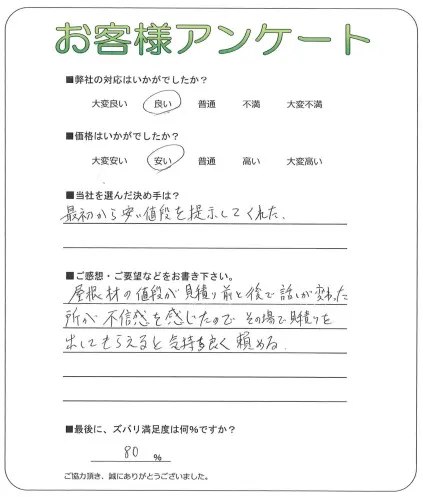 お客様アンケート
■弊社の対応はいかがでしたか?
大変良い 良い 普通 不満 大変不満
■価格はいかがでしたか?
大変安い 安い 普通 高い 大変高い
■当社を選んだ決め手は?
最初から安い値段を提示してくれた.
■ご感想・ご要望などをお書き下さい。
屋根材の値段が見積り前と後で話しが変わった
所が不信感を感じたので その場で見積りを
出してもらえると気持ち良く頼める.
■最後に、ズバリ満足度は何%ですか?
80 %
ご協力頂き、誠にありがとうございました。